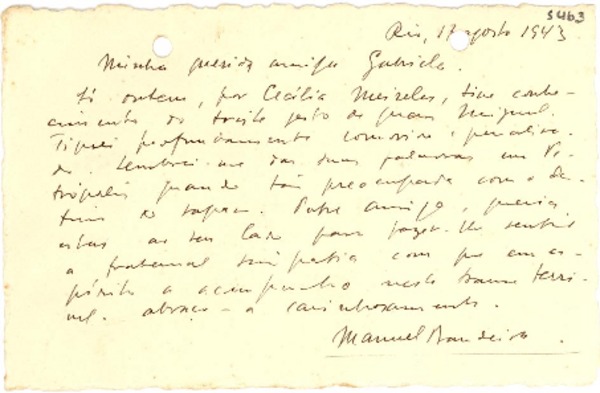 S463
Rio, 17 agosto 1943
Minha querida amiga Gabriela.
Só ontem, por Cecília Meireles, tive conhe-
cimento do triste gesto de Juan Miguel.
Fiquei profundamente comovido e penaliza-
do. Lembrei-me das suas palavras em Pe-
trópolis quando tão preocupada com o des-
tino do rapaz. Pobre amiga, queria
estar ao seu lado para fazer-lhe sentir
a fraternal simpatia com que em es-
pírito a acompanho neste transe terrí-
vel. Abraço-a carinhosamente.
Manuel Bandeira.